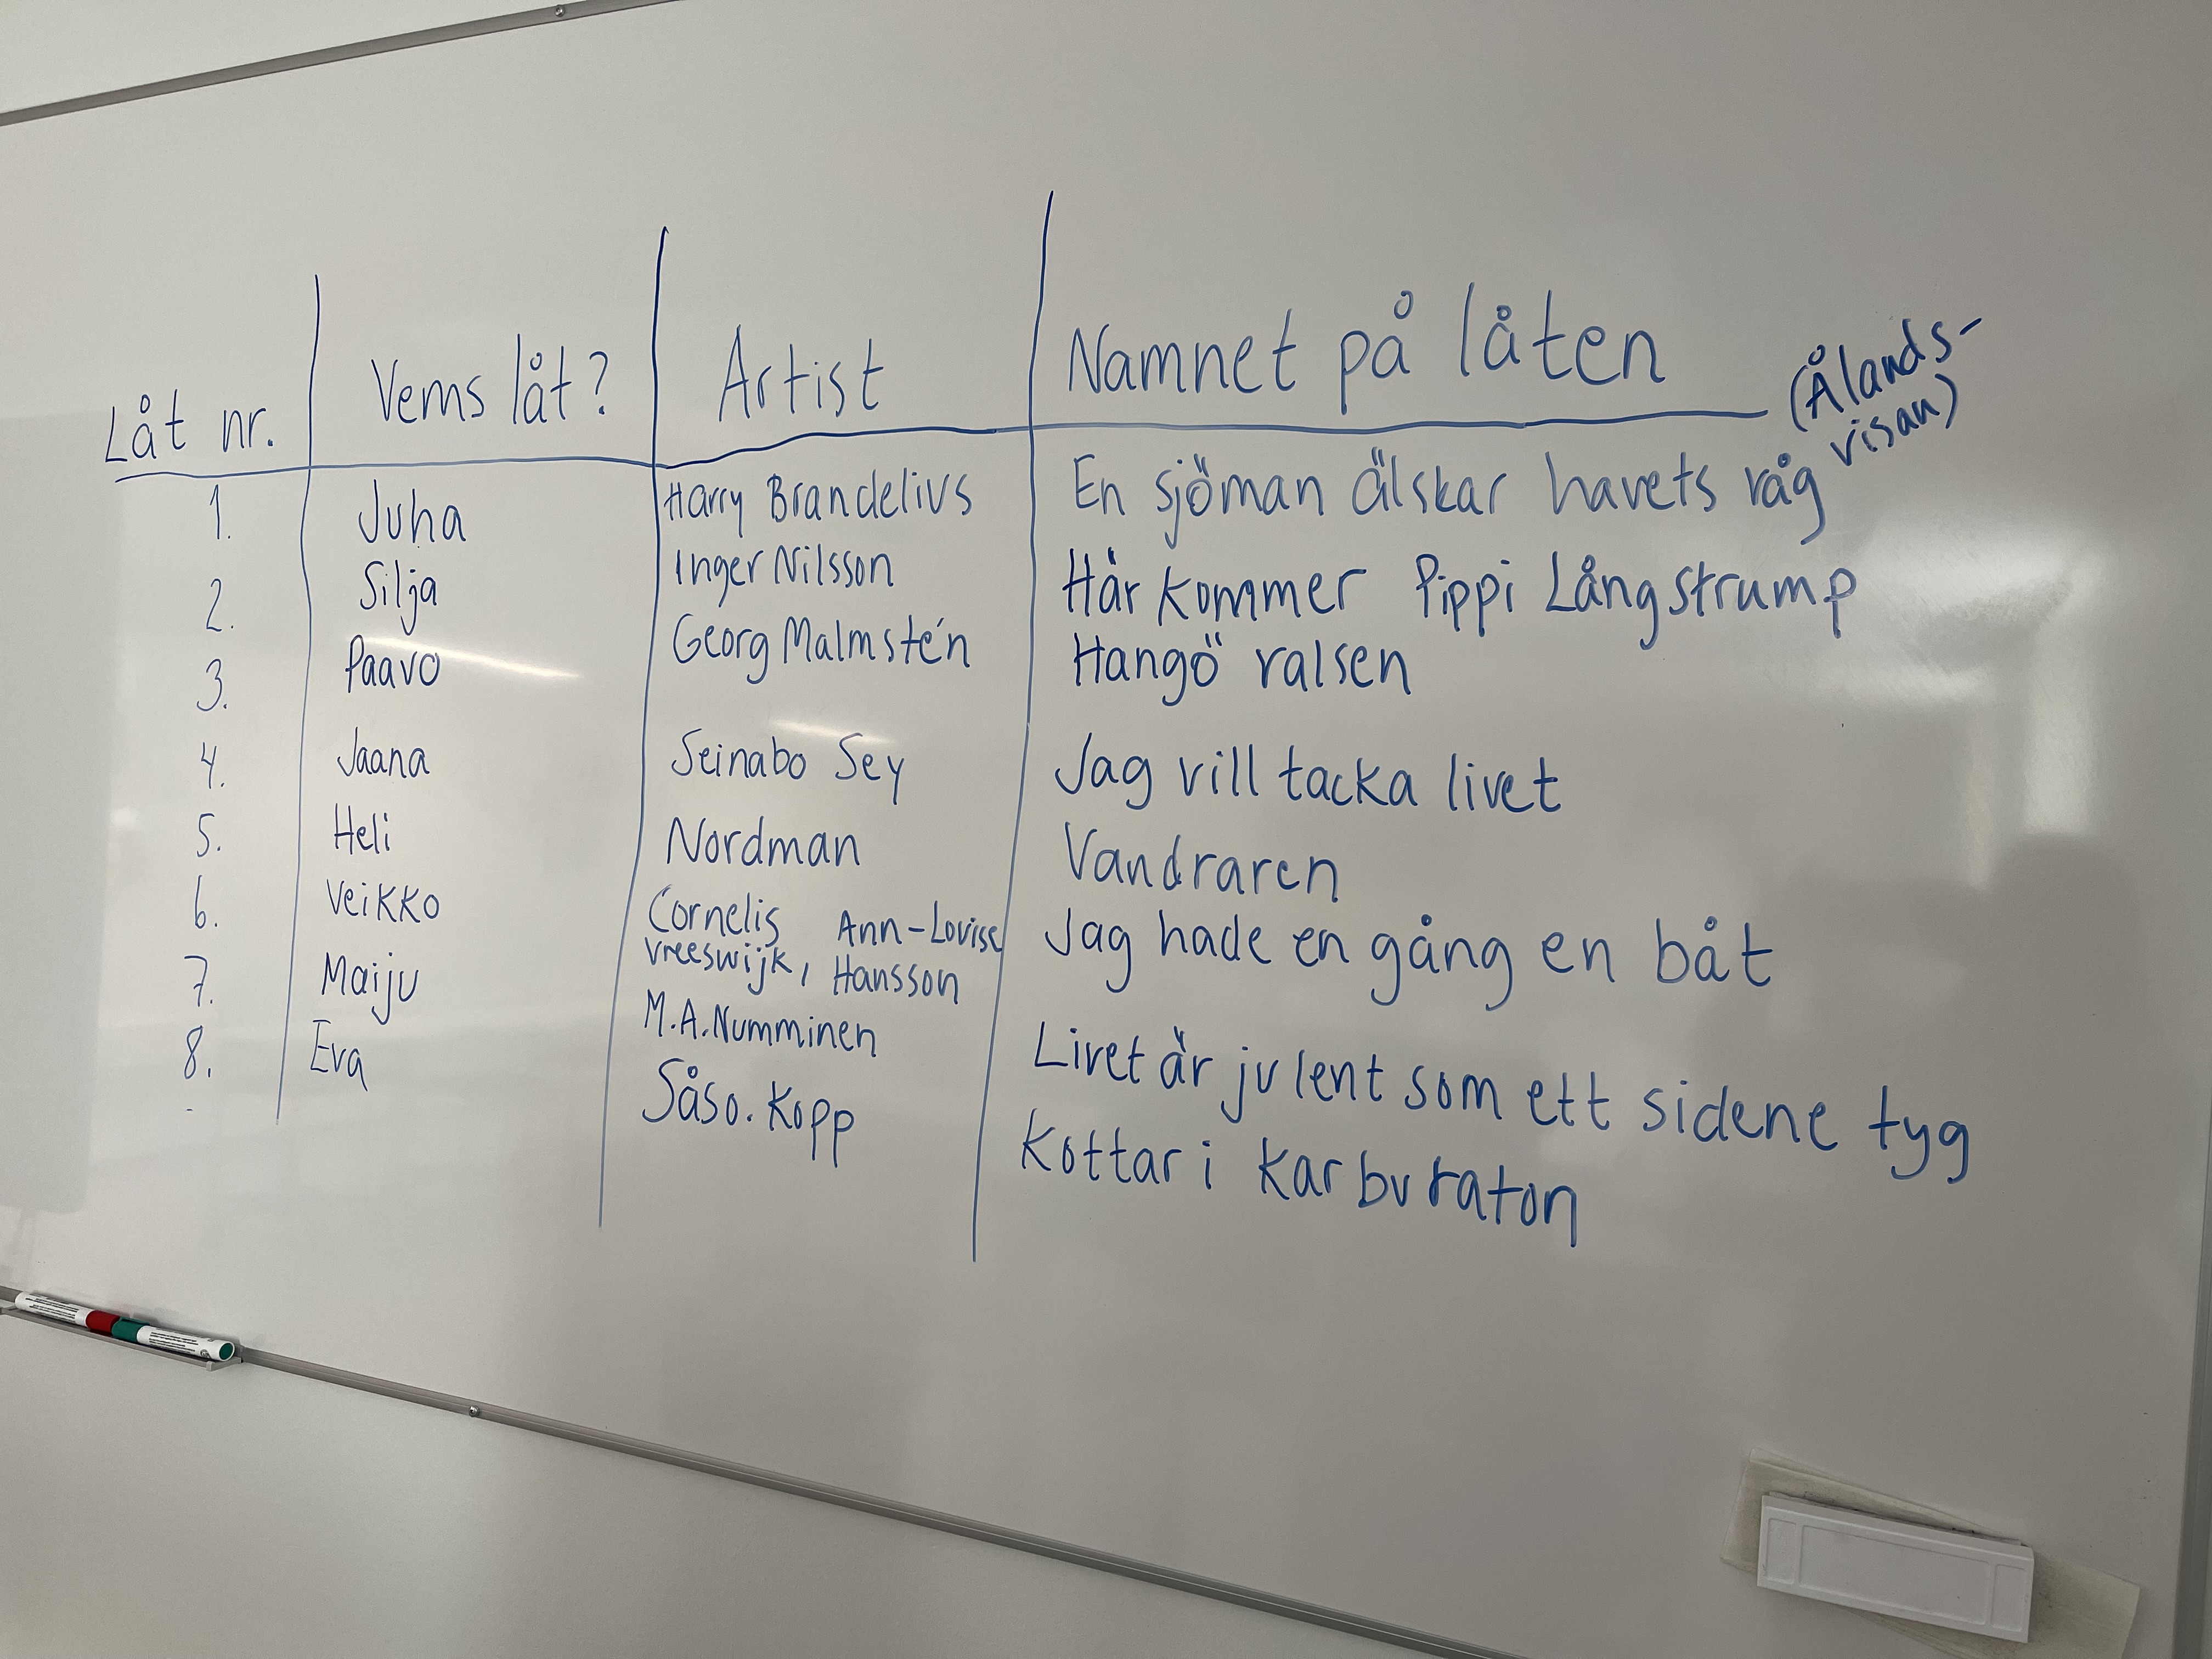 Låt nr. Vems låt? Artist Namnet på låten (Ålands-
visan)
1. Juha Harry Brandelius En sjöman älskar havets våg
2. Silja Inger Nilsson Här kommer Pippi Långstrump
3. Paavo Georg Malmstén Hangö valsen
4. Jaana Seinabo Sey Jag vill tacka livet
5. Heli Nordman Vandraren
6. Veikko Cornelis Vreeswijk, Ann-Louise Hansson Jag hade en gång en båt
7. Maiju M.A.Numminen Livet är ju lent som ett sidene tyg
8. Eva Såso. Kopp Kottar i karburaton